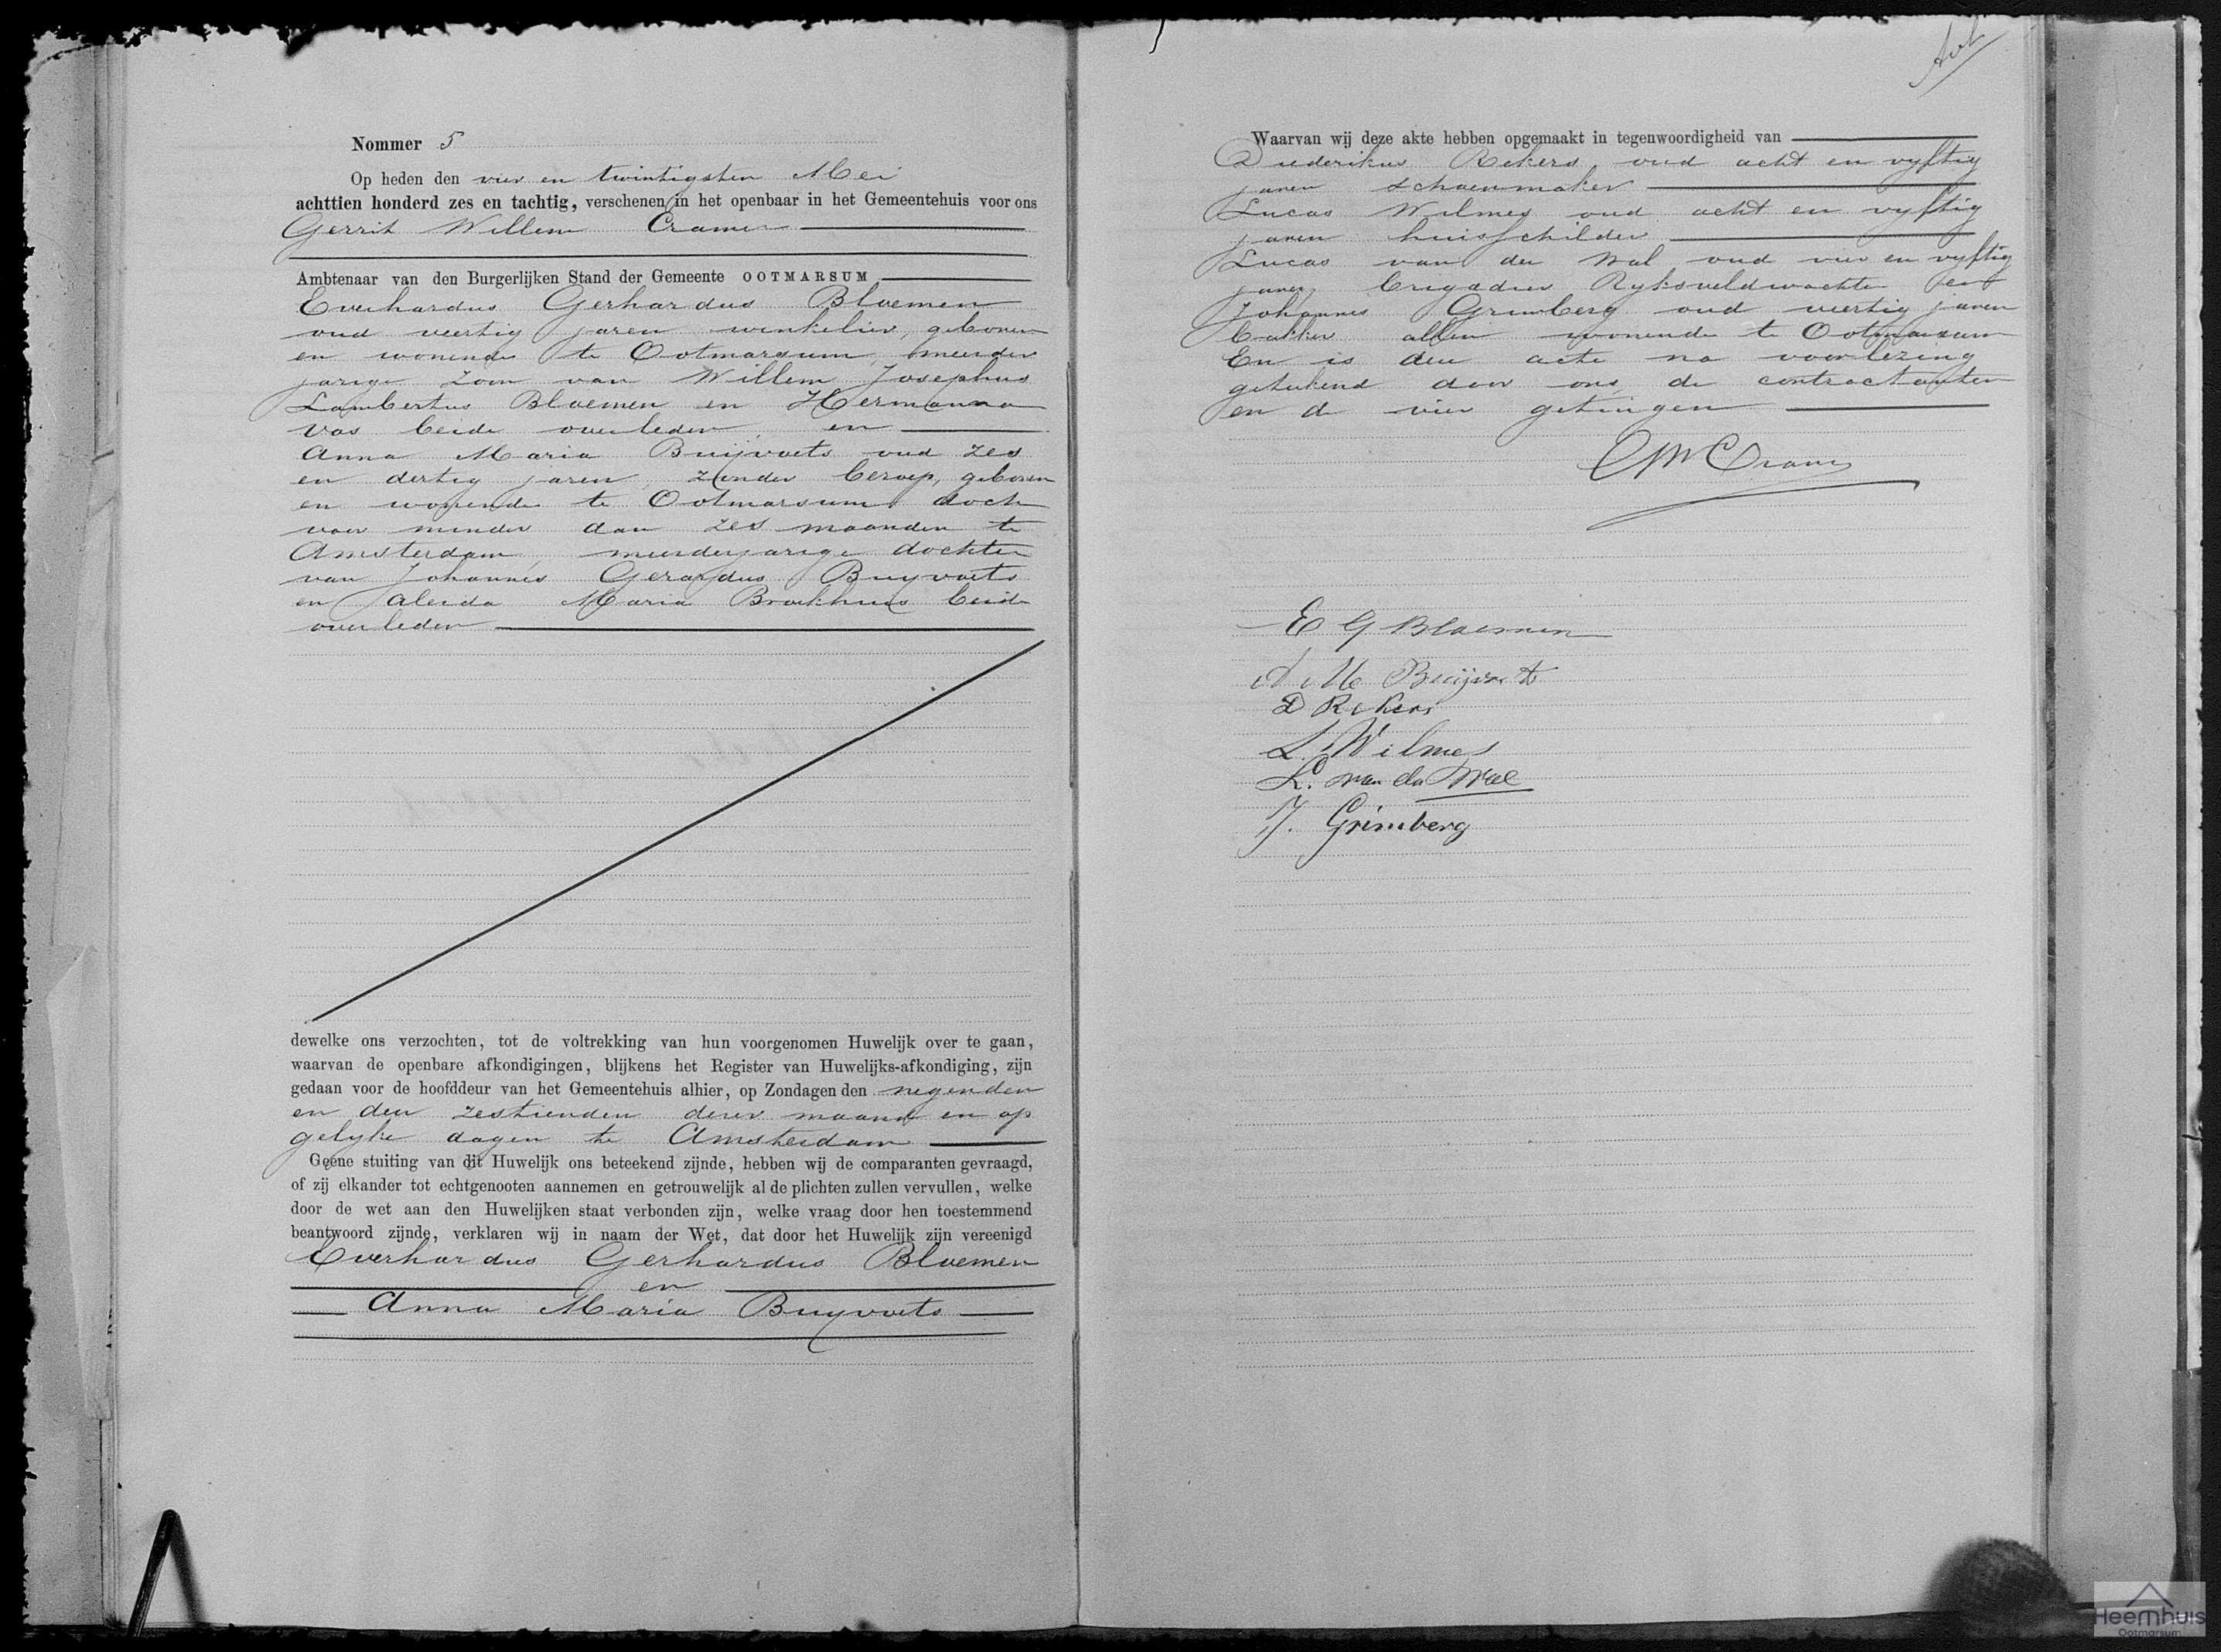 Nommer 5
Op heden den vier en twintigsten Mei
achttien honderd zes en tachtig, verschenen in het openbaar in het Gemeentehuis voor ons
Gerrit Willem Cramer
Ambtenaar van den Burgerlijken Stand der Gemeente OOTMARSUM
Everhardus Gerhardus Bloemen
oud veertig jaren winkelier, geboren
en wonende te Ootmarsum, meerder
jarige zoon van Willem Josephus
Lambertus Bloemen en Hermanna
Vos beide overleden, en
Anna Maria Buijvoets oud zes
en dertig jaren, zonder beroep, geboren
en wonende te Ootmarsum doch
voor minder dan zes maanden te
Amsterdam, meerderjarige dochter
van Johannes Gerardus Buyvoets
en Aleida Maria Broekhuis beide
overleden
dewelke ons verzochten, tot de voltrekking van hun voorgenomen Huwelijk over te gaan,
waarvan de openbare afkondigingen, blijkens het Register van Huwelijks-afkondiging, zijn
gedaan voor de hoofddeur van het Gemeentehuis alhier, op Zondagen den negenden
en den zestienden dezer maand en op
gelyke dagen te Amsterdam
Geene stuiting van dit Huwelijk ons beteekend zijnde, hebben wij de comparanten gevraagd,
of zij elkander tot echtgenooten aannemen en getrouwelijk al de plichten zullen vervullen, welke
door de wet aan den Huwelijken staat verbonden zijn, welke vraag door hen toestemmend
beantwoord zijnde, verklaren wij in naam der Wet, dat door het Huwelijk zijn vereenigd
Everhardus Gerhardus Bloemen
en
Anna Maria Buyvoets
Waarvan wij deze akte hebben opgemaakt in tegenwoordigheid van
Diederikus Rekers, oud acht en vyftig
jaren schoenmaker
Lucas Wilmes oud acht en vyftig
jaren huisschilder
Lucas van der Wal oud vier en vyftig
jaren, brigadier Ryksveldwachter en
Johannes Grimberg oud veertig jaren
bakker allen wonende te Ootmarsum
En is deze acte na voorlezing
getekend door ons, de contractanten
en de vier getuigen
GW Cramer
E G Bloemen
A M Buijvoets
D Rekers
L. Wilmes
L. van der Wal
J. Grimberg
Heemhuis
Ootmarsum